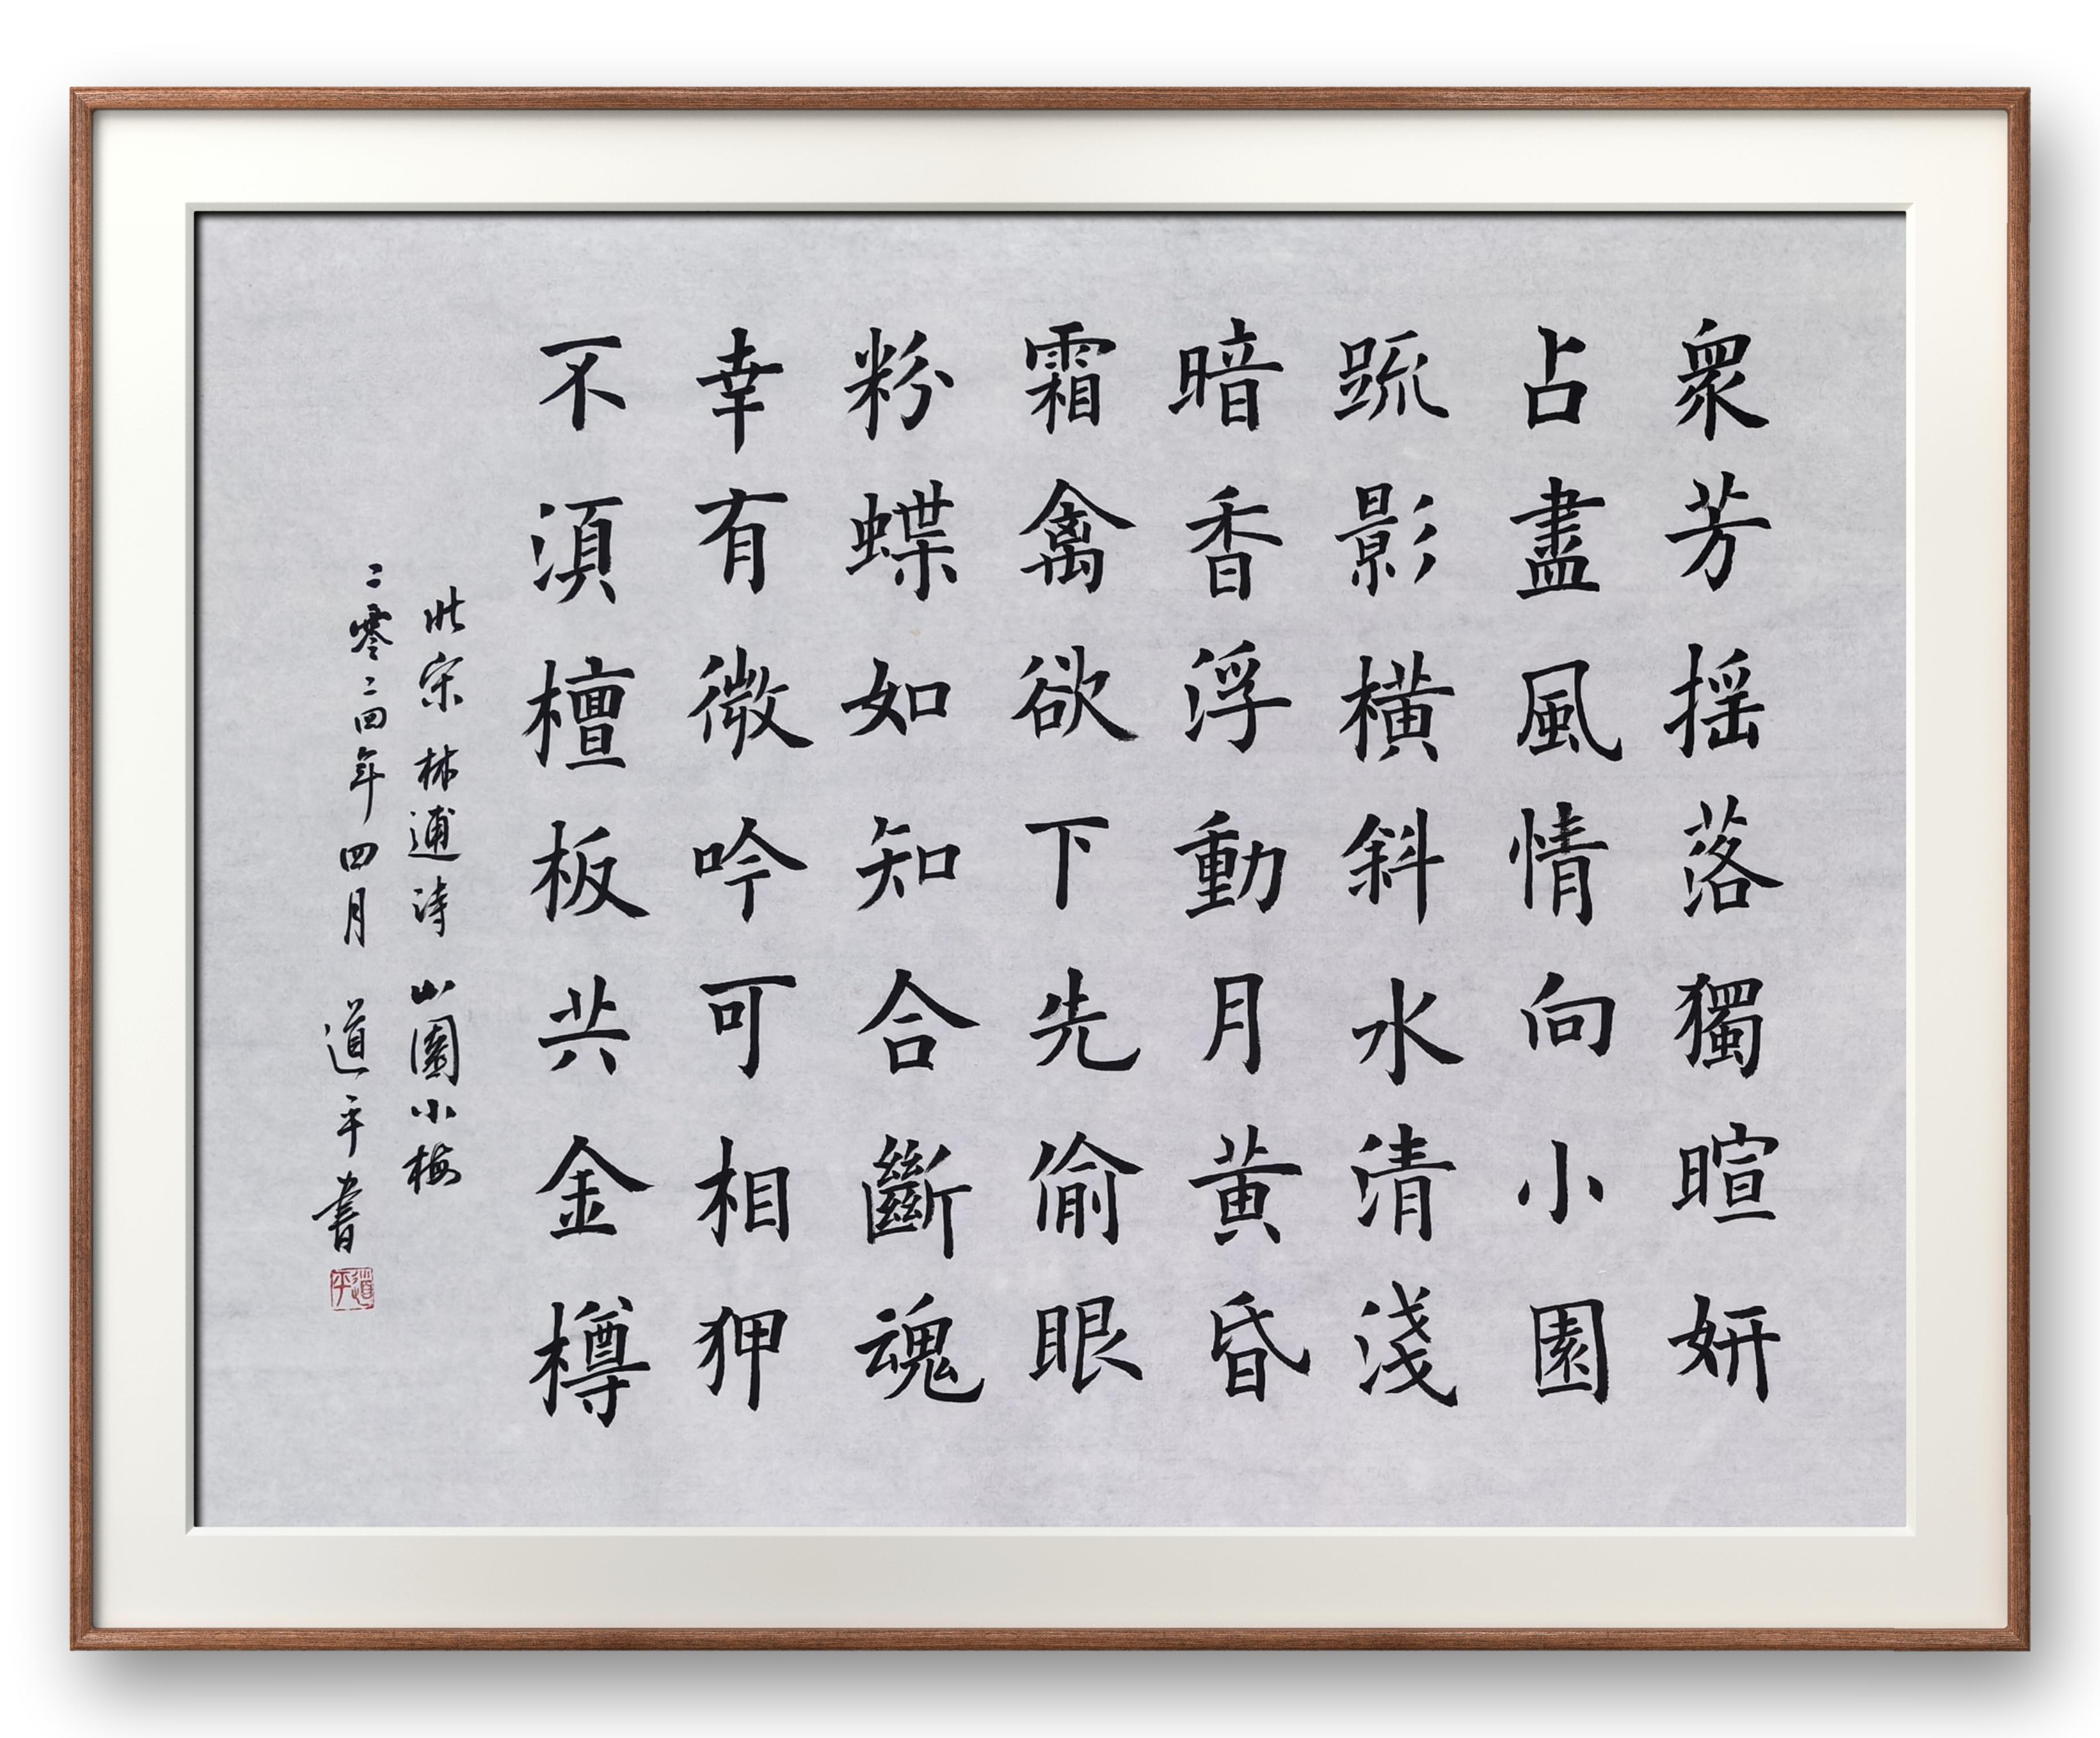 衆芳揺落獨暄妍
占盡風情向小園
疏影橫斜水清淺
暗香浮動月黃昏
霜禽欲下先偷眼
粉蝶如知合斷魂
幸有微吟可相狎
不須檀板共金樽
此宋林逋詩 山園小梅
二零二四年四月 道平書
道平